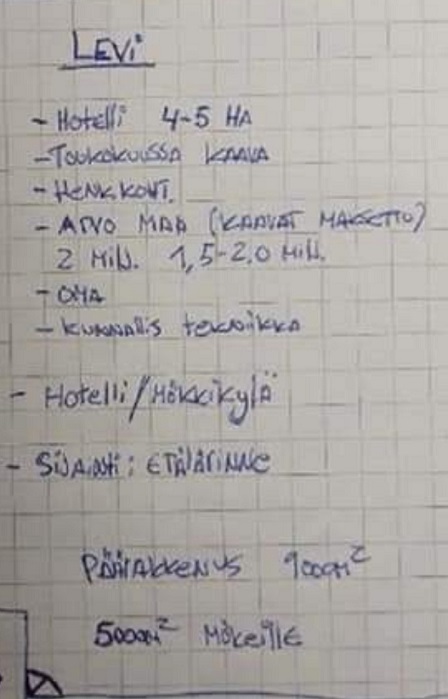 LEVI
- Hotelli 4-5 HA
- TOUKOKUUSSA KAAVA
- HENK.KOHT.
- ARVO MAA (KAAVAT MAKSETTU)
2 Milj. 1,5-2,0 Milj.
- OMA
- KUNNALLIS tekniikka
- Hotelli/Mökkikylä
- Sijainti: ETELÄRINNE
PÄÄRAKKENUS 9000m²
5000m² MÖKEILLE